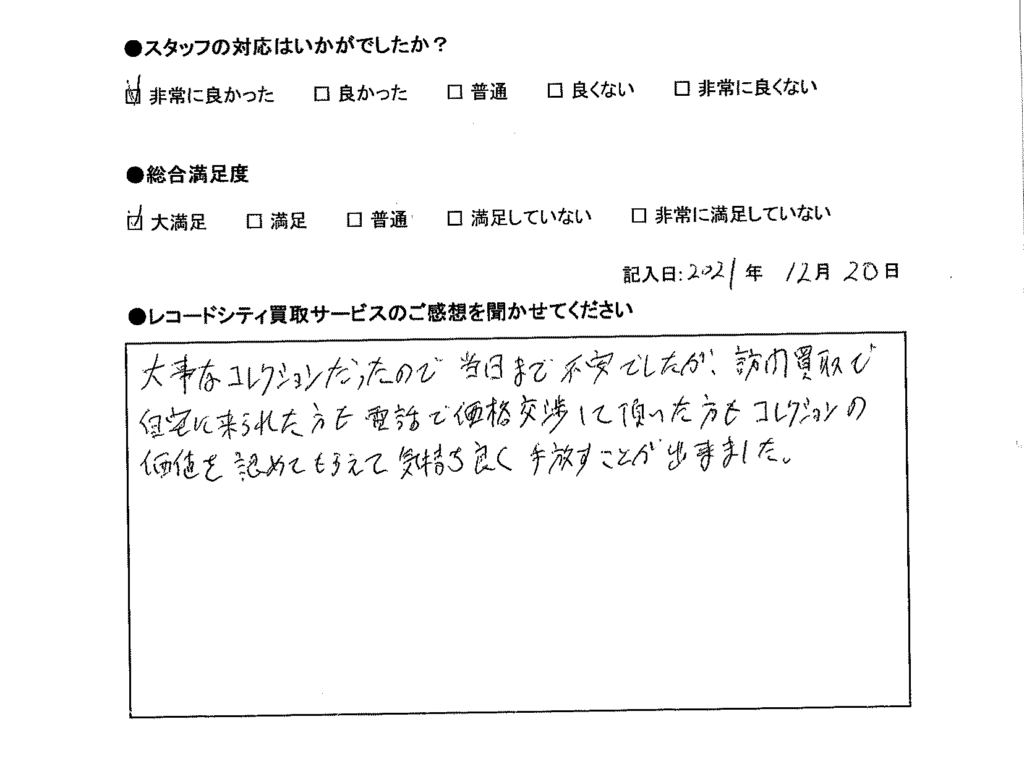 ●スタッフの対応はいかがでしたか？
☑ 非常に良かった □ 良かった □ 普通 □ 良くない □ 非常に良くない
●総合満足度
☑ 大満足 □ 満足 □ 普通 □ 満足していない □ 非常に満足していない
記入日:2021年 12月 20日
●レコードシティ買取サービスのご感想を聞かせてください
大事なコレクションだったので 当日まで 不安でしたが、訪問買取で
自宅に来られた方も 電話で価格交渉して頂いた方も コレクションの
価値を 認めてもらえて 気持ち良く 手放すことが 出来ました。